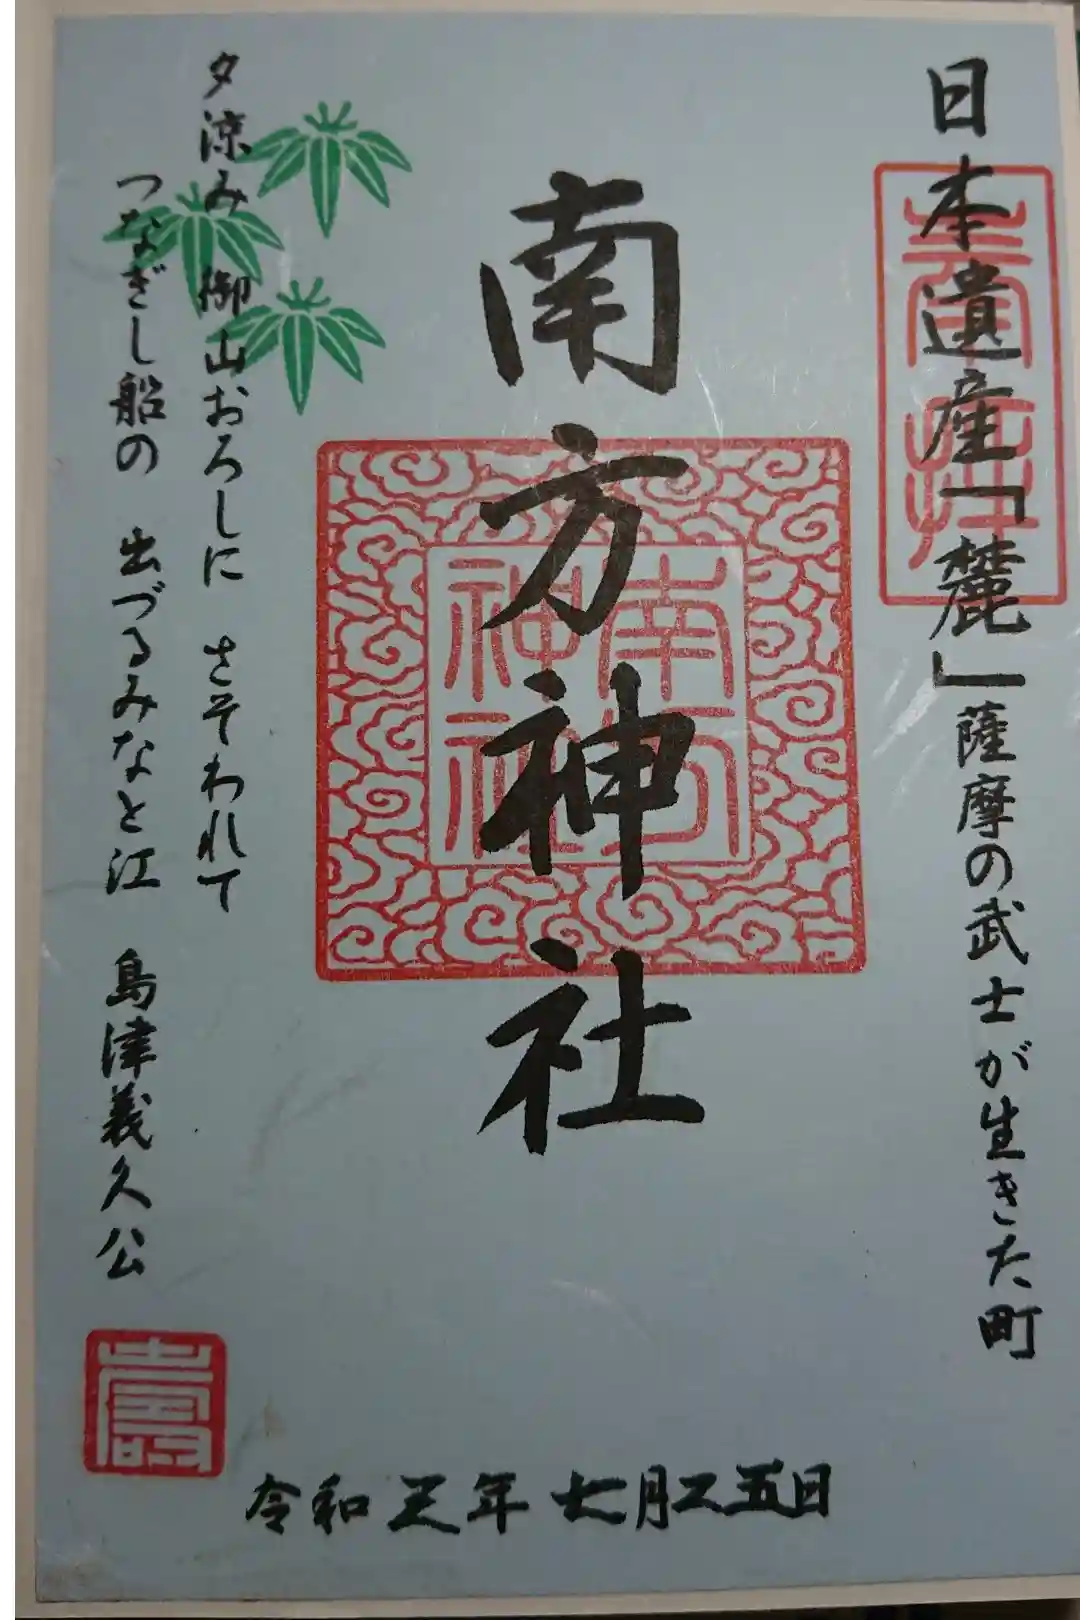 日本遺産「麓」薩摩の武士が生きた町
奉拝
南方神社
南方
神社
夕涼み 御山おろしに さそわれて
つなぎし船の 出づるみなと江 島津義久公
壽
令和 年 七月 五日